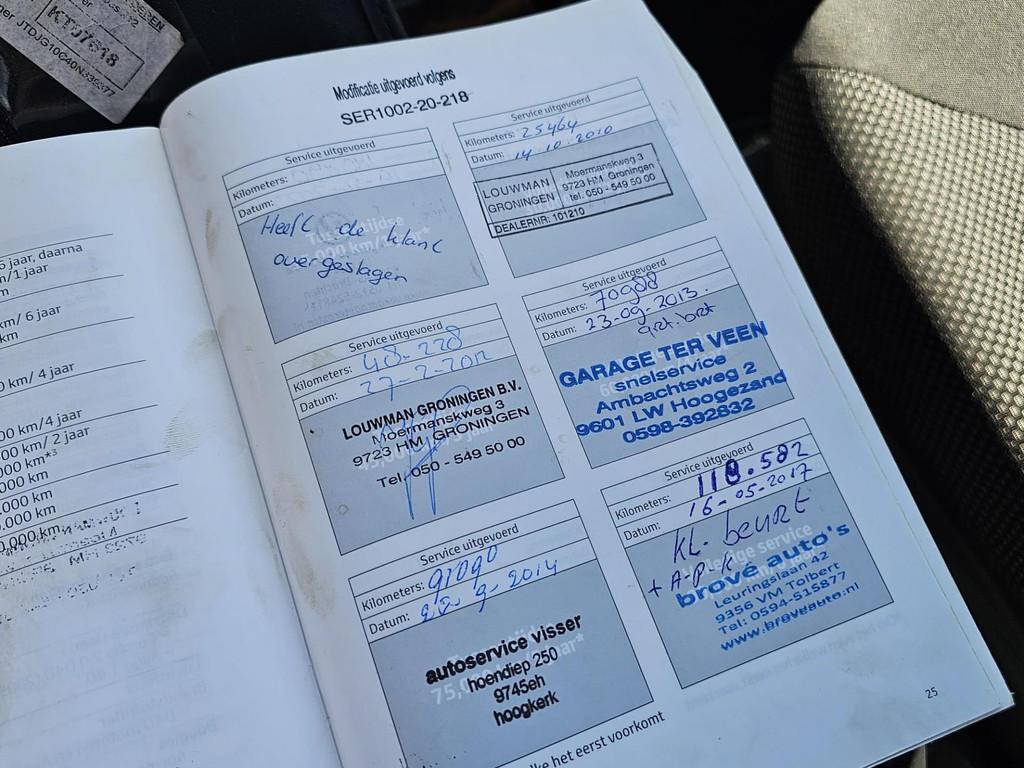 JTDJG10C40N
6 jaar, daarna
km/1 jaar
km/ 6 jaar
km
km/ 4 jaar
km/4 jaar
km/ 2 jaar
000 km*³
000 km
.000 km
.000 km
0,000 km
Modificatie uitgevoerd volgens
SER1002-20-218
Service uitgevoerd
Kilometers:
Datum:
Heeft de klant
overgeslagen
Service uitgevoerd
Kilometers: 25464
Datum: 14.10.2010
LOUWMAN
GRONINGEN
Moermanskweg 3
9723 HM Groningen
tel. 050 - 549 50 00
DEALERNR: 101210
Service uitgevoerd
Kilometers: 48-228
Datum: 27-2-2012
LOUWMAN GRONINGEN B.V.
Moermanskweg 3
9723 HM GRONINGEN
Tel. 050 - 549 50 00
Service uitgevoerd
Kilometers: 70988
Datum: 23-09-2013.
GARAGE TER VEEN
snelservice
Ambachtsweg 2
9601 LW Hoogezand
0598-392832
Service uitgevoerd
Kilometers: 91090
Datum: 22-9-2014
autoservice visser
75,
hoendiep 250
9745eh
hoogkerk
Service uitgevoerd
Kilometers: 118.582
Datum: 16-05-2017
KL. beurt
+ A.P.K
brové auto's
Leuringslaan 42
9356 VM Tolbert
Tel: 0594-515877
www.broveauto.nl
lke het eerst voorkomt
25